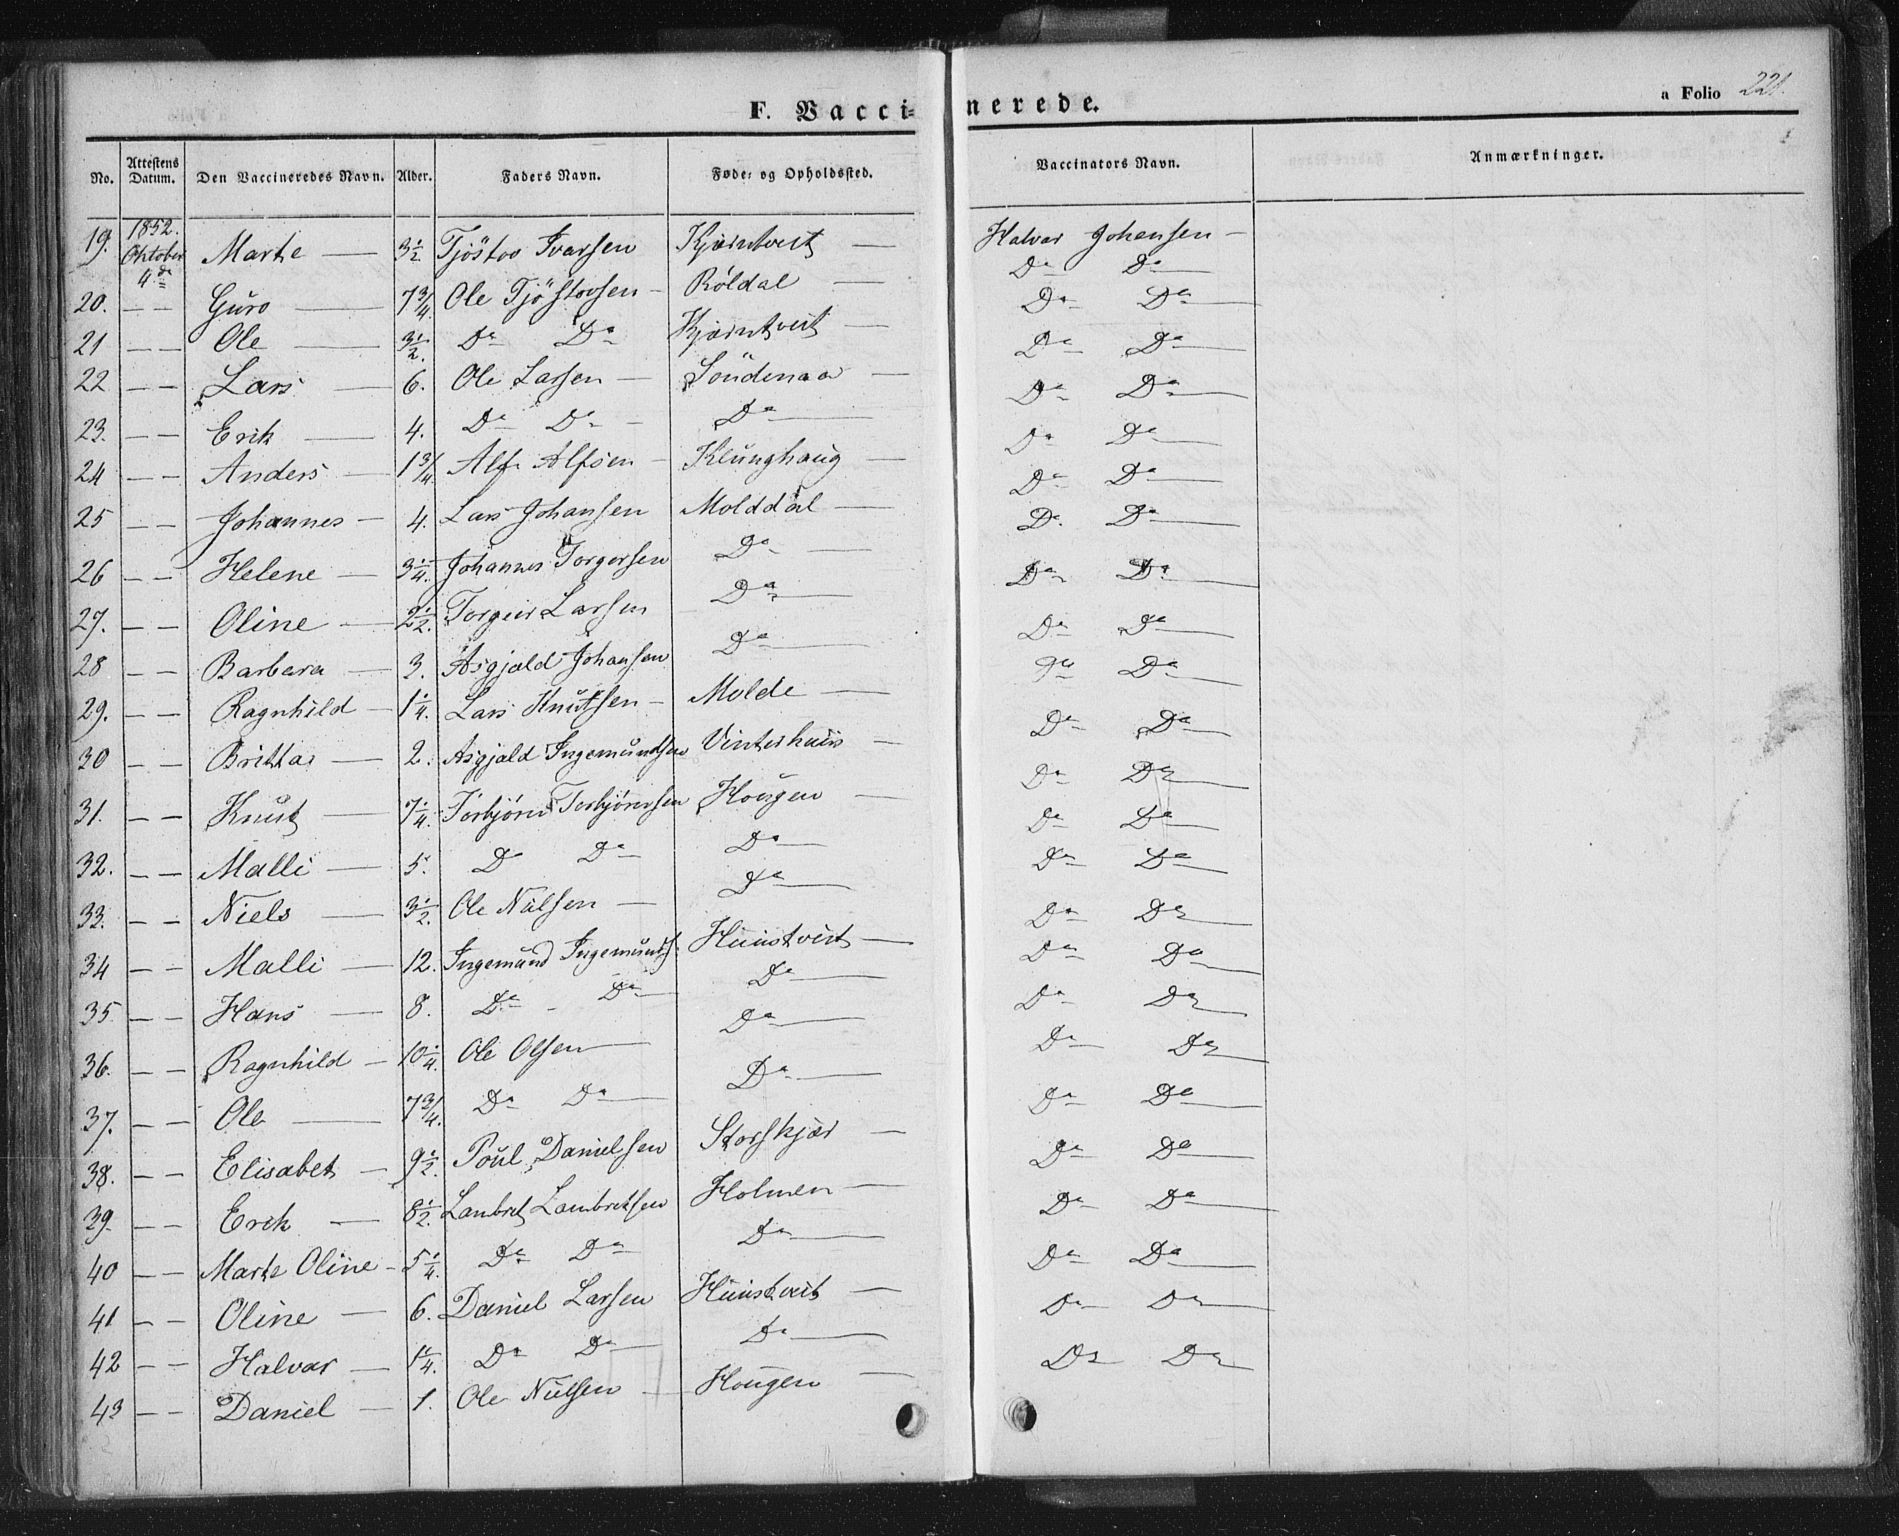 F. Vaccinerede.
a Folio 221.
No. Attestens Datum. Den Vaccineredes Navn. Alder. Faders Navn. Føde- og Opholdssted. Vaccinators Navn. Anmærkninger.
19. 1852. Oktober 4de Marte — 3½ Tjöstov Ivarsen Kjærntveit — Halvar Johansen —
20. — — Guro — 7¾ Ole Tjöstovsen — Röldal — Do Do —
21 — — Ole — 3½. Do Do Kjærntveit — Do Do
22 — — Lars — 6. Ole Larsen — Söndenaa — Do Do —
23. — — Erik — 4. Do Do — Do — Do Do —
24 — — Anders — 1¾ Alf Alfsen — Klunghaug — Do Do —
25 — — Johannes — 4. Lars Johansen Molddal — Do Do —
26 — — Helene — 3¼. Johannes Torgersen Do — Do. Do —
27. — — Oline — 2½. Torgeir Larsen Do — Do Do —
28 — — Barbara — 3. Asgjald Johansen Do — Do Do —
29. — — Ragnhild — 1¼. Lars Knutsen — Molde — Do Do —
30 — — Britta — 2. Asgjald Ingemundsen Vinterhuus — Do Do —
31. — — Knut — 7¼. Torbjörn Torbjörnsen Hougen — Do Do —
32. — — Malli — 5. Do Do Do — Do Do —
33. — — Niels — 3½. Ole Nilsen — Do — Do Do —
34 — — Malli — 12. Ingemund Ingemunds. Huustveit — Do Do —
35 — — Hans — 8. Do - Do — Do — Do Do —
36. — — Ragnhild — 10¼. Ole Olsen — Do — Do Do —
37. — — Ole — 7¾. Do Do — Do — Do Do —
38. — — Elisabet — 9½. Poul Danielsen Storskjær — Do Do —
39. — — Erik — 8½. Lambret Lambretsen Holmen — Do Do —
40 — — Marte Oline - 5¼. Do Do Do — Do Do —
41 — — Oline — 6. Daniel Larsen Huustveit — Do Do —
42 — — Halvar — 1¼. Do Do — Do — Do Do —
43 — — Daniel — 1. Ole Nilsen — Hougen — Do Do —